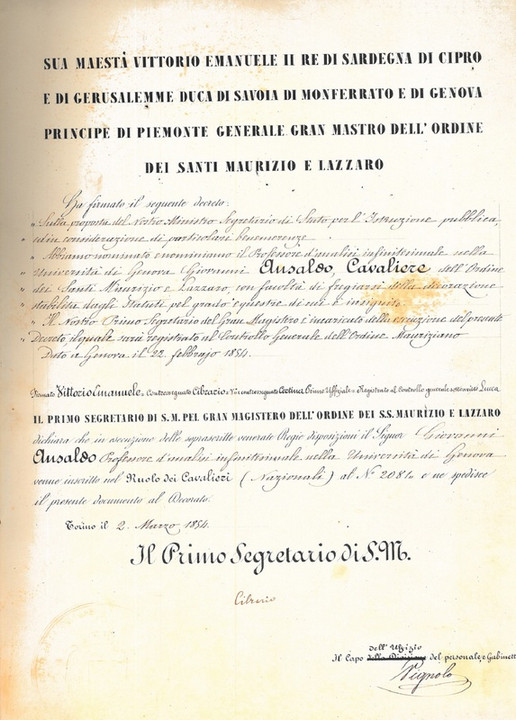 SUA MAESTÀ VITTORIO EMANUELE II RE DI SARDEGNA DI CIPRO
E DI GERUSALEMME DUCA DI SAVOIA DI MONFERRATO E DI GENOVA
PRINCIPE DI PIEMONTE GENERALE GRAN MASTRO DELL'ORDINE
DEI SANTI MAURIZIO E LAZZARO
Ha firmato il seguente decreto:
" Sulla proposta del Nostro Ministro Segretario di Stato per l'Istruzione pubblica,
" ed in considerazione di particolari benemerenze.
" Abbiamo nominato e nominiamo il Professore d'analisi infinitesimale nella
" Università di Genova Giovanni Ansaldo, Cavaliere dell'Ordine
" dei Santi Maurizio e Lazzaro, con facoltà di fregiarsi della decorazione
" stabilita dagli Statuti pel grado equestre di cui è insignito
" Il Nostro Primo Segretario del Gran Magistero è incaricato della esecuzione del presente
" Decreto, il quale sarà registrato al Controllo Generale dell'Ordine Mauriziano
Dato a Genova il 22 febbrajo 1854.
Firmato Vittorio Emanuele, Contrassegnato Cibrario e Vi contrassegnato Cortina Primo Uffiziale e Registrato al Controllo generale sottoscritto Luca
IL PRIMO SEGRETARIO DI S.M. PEL GRAN MAGISTERO DELL'ORDINE DEI S.S. MAURIZIO E LAZZARO
dichiara che in esecuzione delle soprascritte venerate Regie disposizioni il Signor Giovanni
Ansaldo Professore d'analisi infinitesimale nella Università di Genova
venne inscritto nel Ruolo dei Cavalieri (Nazionali) al N° 2081 e ne spedisce
il presente documento al Decorato.
Torino il 2. Marzo 1854.
Il Primo Segretario di S.M.
Cibrario
dell'Uffizio
Il Capo della Divisione del personale e Gabinetto